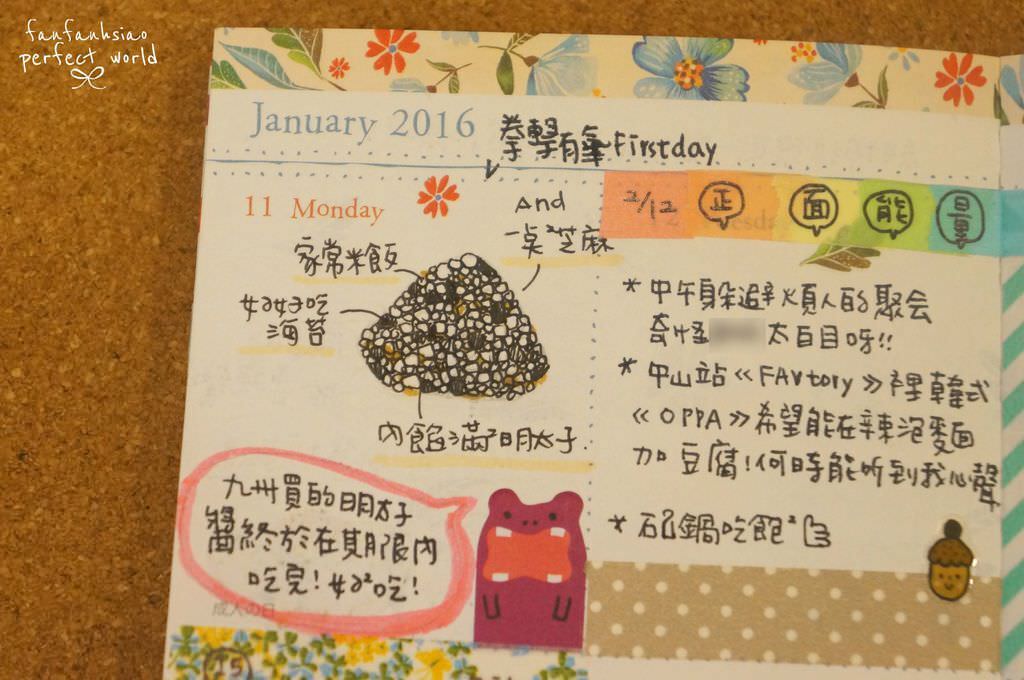 fanfanhsiao
perfect world
January 2016
拳擊有氧Firstday
11 Monday
And
一點芝麻
家常米飯
好好吃
海苔
內餡滿滿明太子.
九州買的明太子
醬終於在期限內
吃完!好好吃!
成人の日
15
2/12 正面能量
* 中午躲避煩人的聚会
奇怪 太白目呀!!
* 中山站《FAVtory》裡韓式
《OPPA》希望能在辣泡麵
加豆腐!何時能听到我心聲
* 石鍋吃飽²